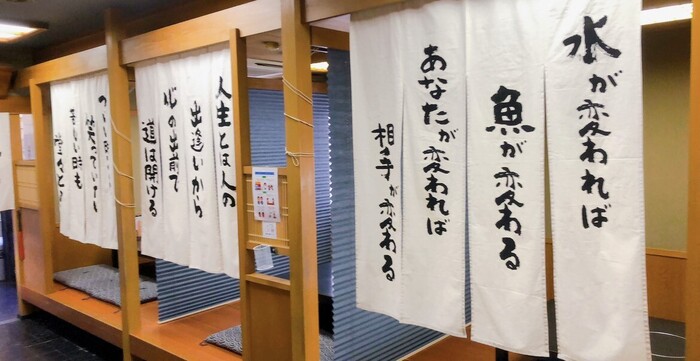 水が変われば
魚が変わる
あなたが変われば
相手が変わる
人生とは人の
出逢いから
心の出前で
道は開ける
苦しい時も